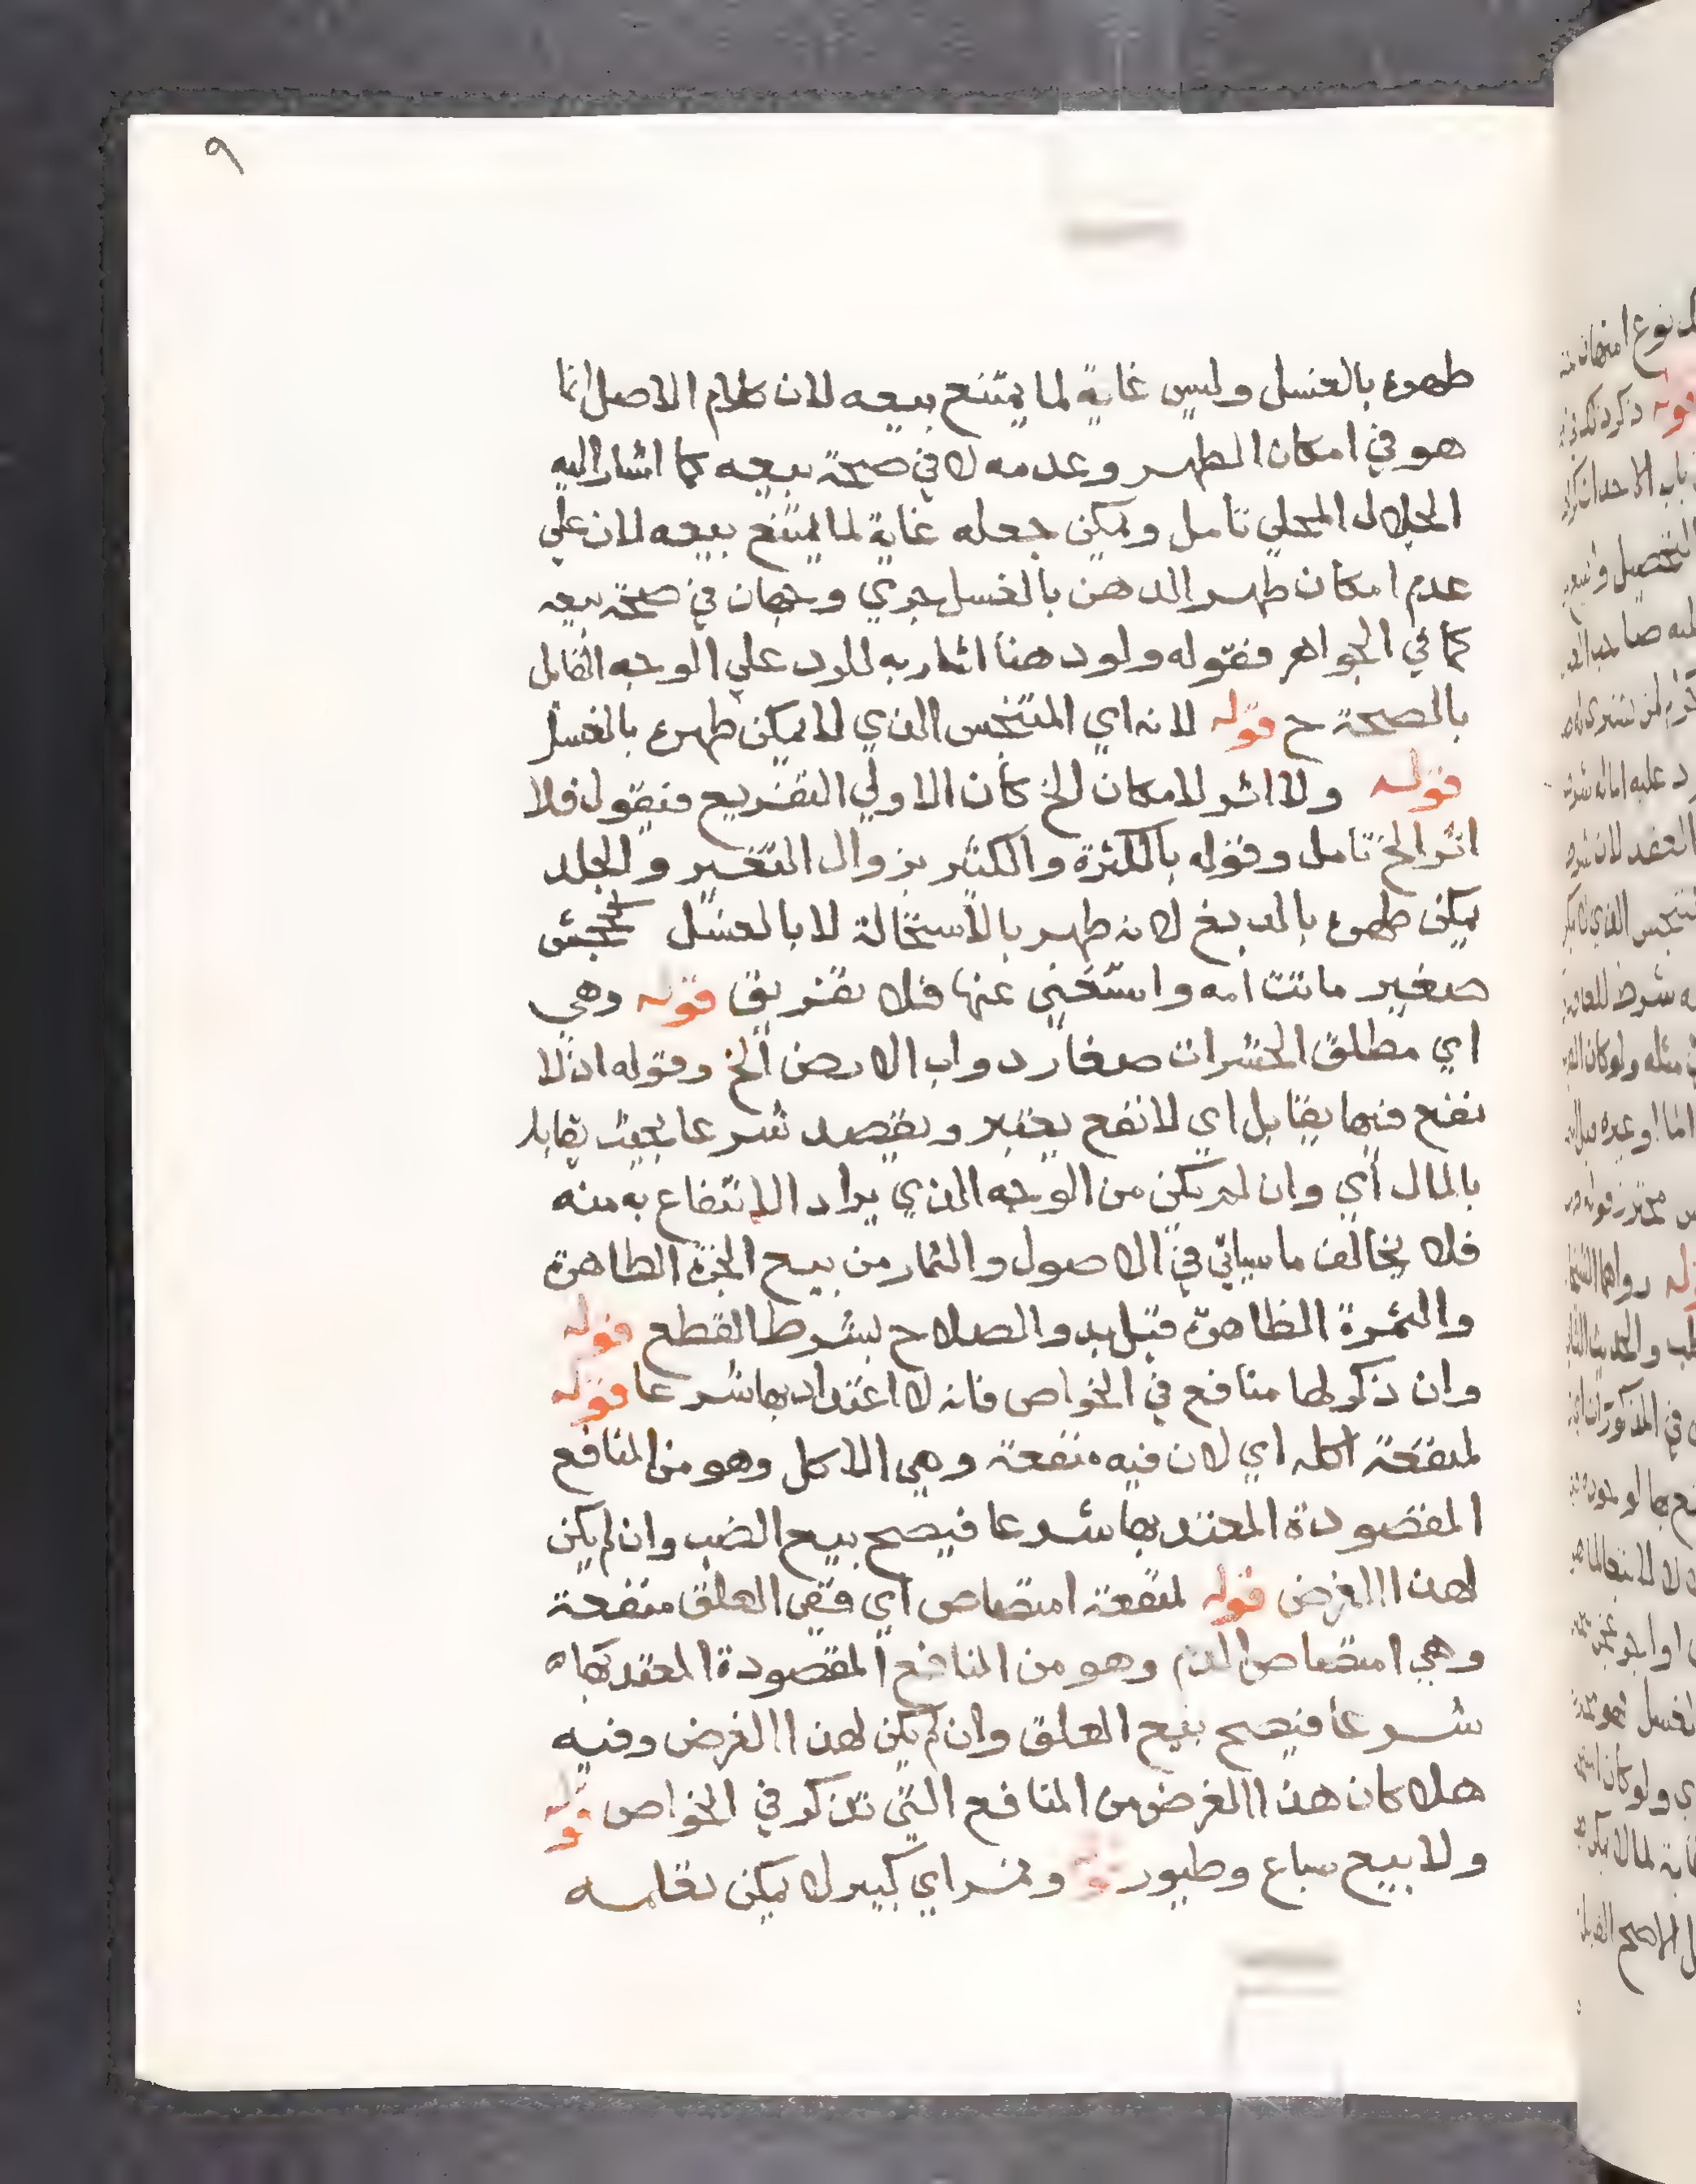 ٩
طهره بالغسل وليس غاية لما يمتنع بيعه لان كلام الاصل انما
هو في امكان الطهر وعدمه لا في صحة بيعه كما اشار اليه
الجلال المحلي تامل ويمكن جعله غاية لما يمتنع بيعه لان علي
عدم امكان طهر الدهن بالغسل جري وجهان في صحة بيعه
كما في الجواهر فقوله ولو دهنا اشار به للرد علي الوجه القايل
بالصحة ح قوله لانه اي المتنجس الذي لا يمكن طهره بالغسل
قوله ولا اثر لامكان الخ كان الاولي التفريع فيقول فلا
اثر الخ تامل وقوله بالكثرة والكثير بزوال التغير والجلد
يمكن طهره بالدبغ لانه طهر بالاستحالة لا بالغسل كجحش
صغير ماتت امه واستغني عنها فلا تفريق قوله وهي
اي مطلق الحشرات صغار دواب الارض الخ وقوله اذ لا
نفع فيها يقابل اي لا نفع يعتبر ويقصد شرعا بحيث يقابل
بالمال أي وان لم يكن من الوجه الذي يراد الانتفاع به منه
فلا يخالف ما سياتي في الاصول والثمار من بيع الجزة الظاهرة
والثمرة الظاهرة قبل بدو الصلاح بشرط القطع قوله
وان ذكر لها منافع في الخواص فانه لا اعتداد بها شرعا قوله
لمنفعة اكله اي لان فيه منفعة وهي الاكل وهو من المنافع
المقصودة المعتد بها شرعا فيصح بيع الضب وان لم يكن
لهذا الغرض قوله لمنفعة امتصاص اي ففي العلق منفعة
وهي امتصاص الدم وهو من المنافع المقصودة المعتد بها
شرعا فيصح بيع العلق وان لم يكن لهذا الغرض وفيه
هلا كان هذا الغرض من المنافع التي تذكر في الخواص قوله
ولا بيع سباع وطيور قوله ونمر اي كبير لا يمكن تعليمه